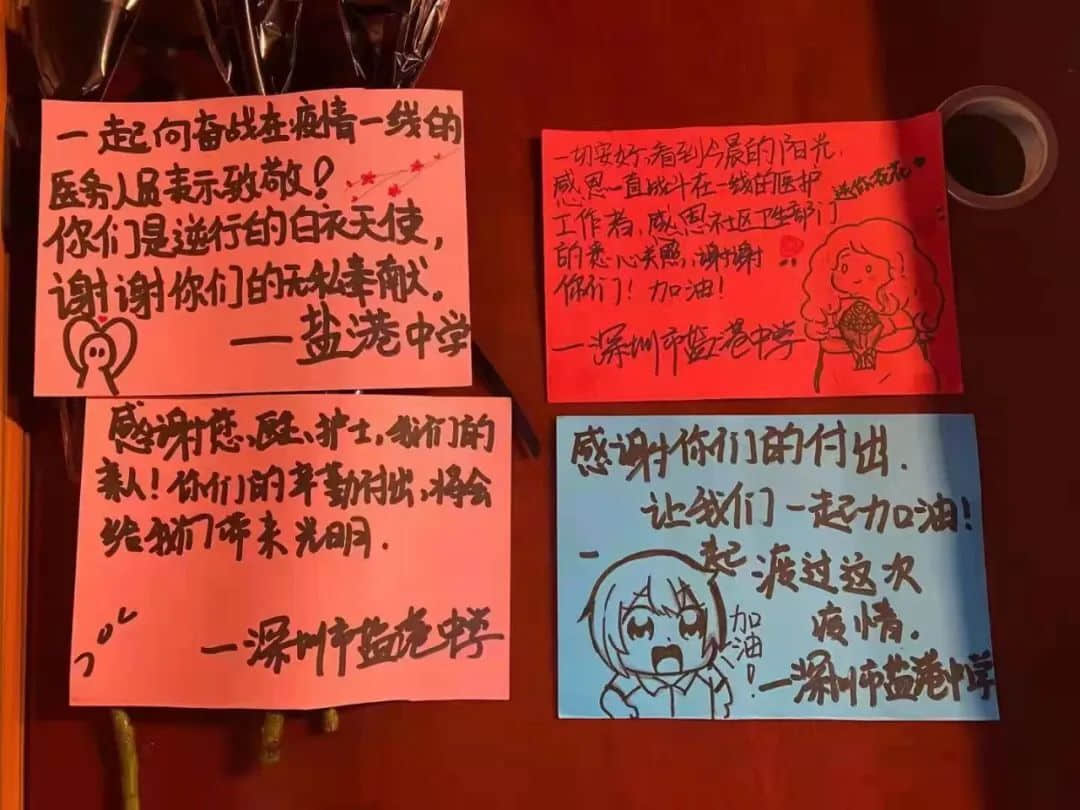 一起向奋战在疫情一线的
医务人员表示致敬！
你们是逆行的白衣天使，
谢谢你们的无私奉献。
——盐港中学
一切安好，看到今晨的阳光，
感恩一直战斗在一线的医护
工作者，感恩社区卫生部门
的悉心关照，谢谢
你们！加油！
送你花花
——深圳市盐港中学
感谢您，医生、护士，我们的
亲人！你们的辛勤付出，将会
给我们带来光明.
——深圳市盐港中学
感谢你们的付出.
让我们一起加油！
一起渡过这次
疫情.
加油！
——深圳市盐港中学